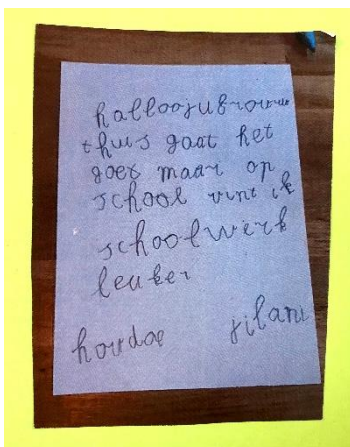 halloojufrouw
thuis gaat het
goet maar op
school vint ik
schoolwerk
leuker
houdoe jilani